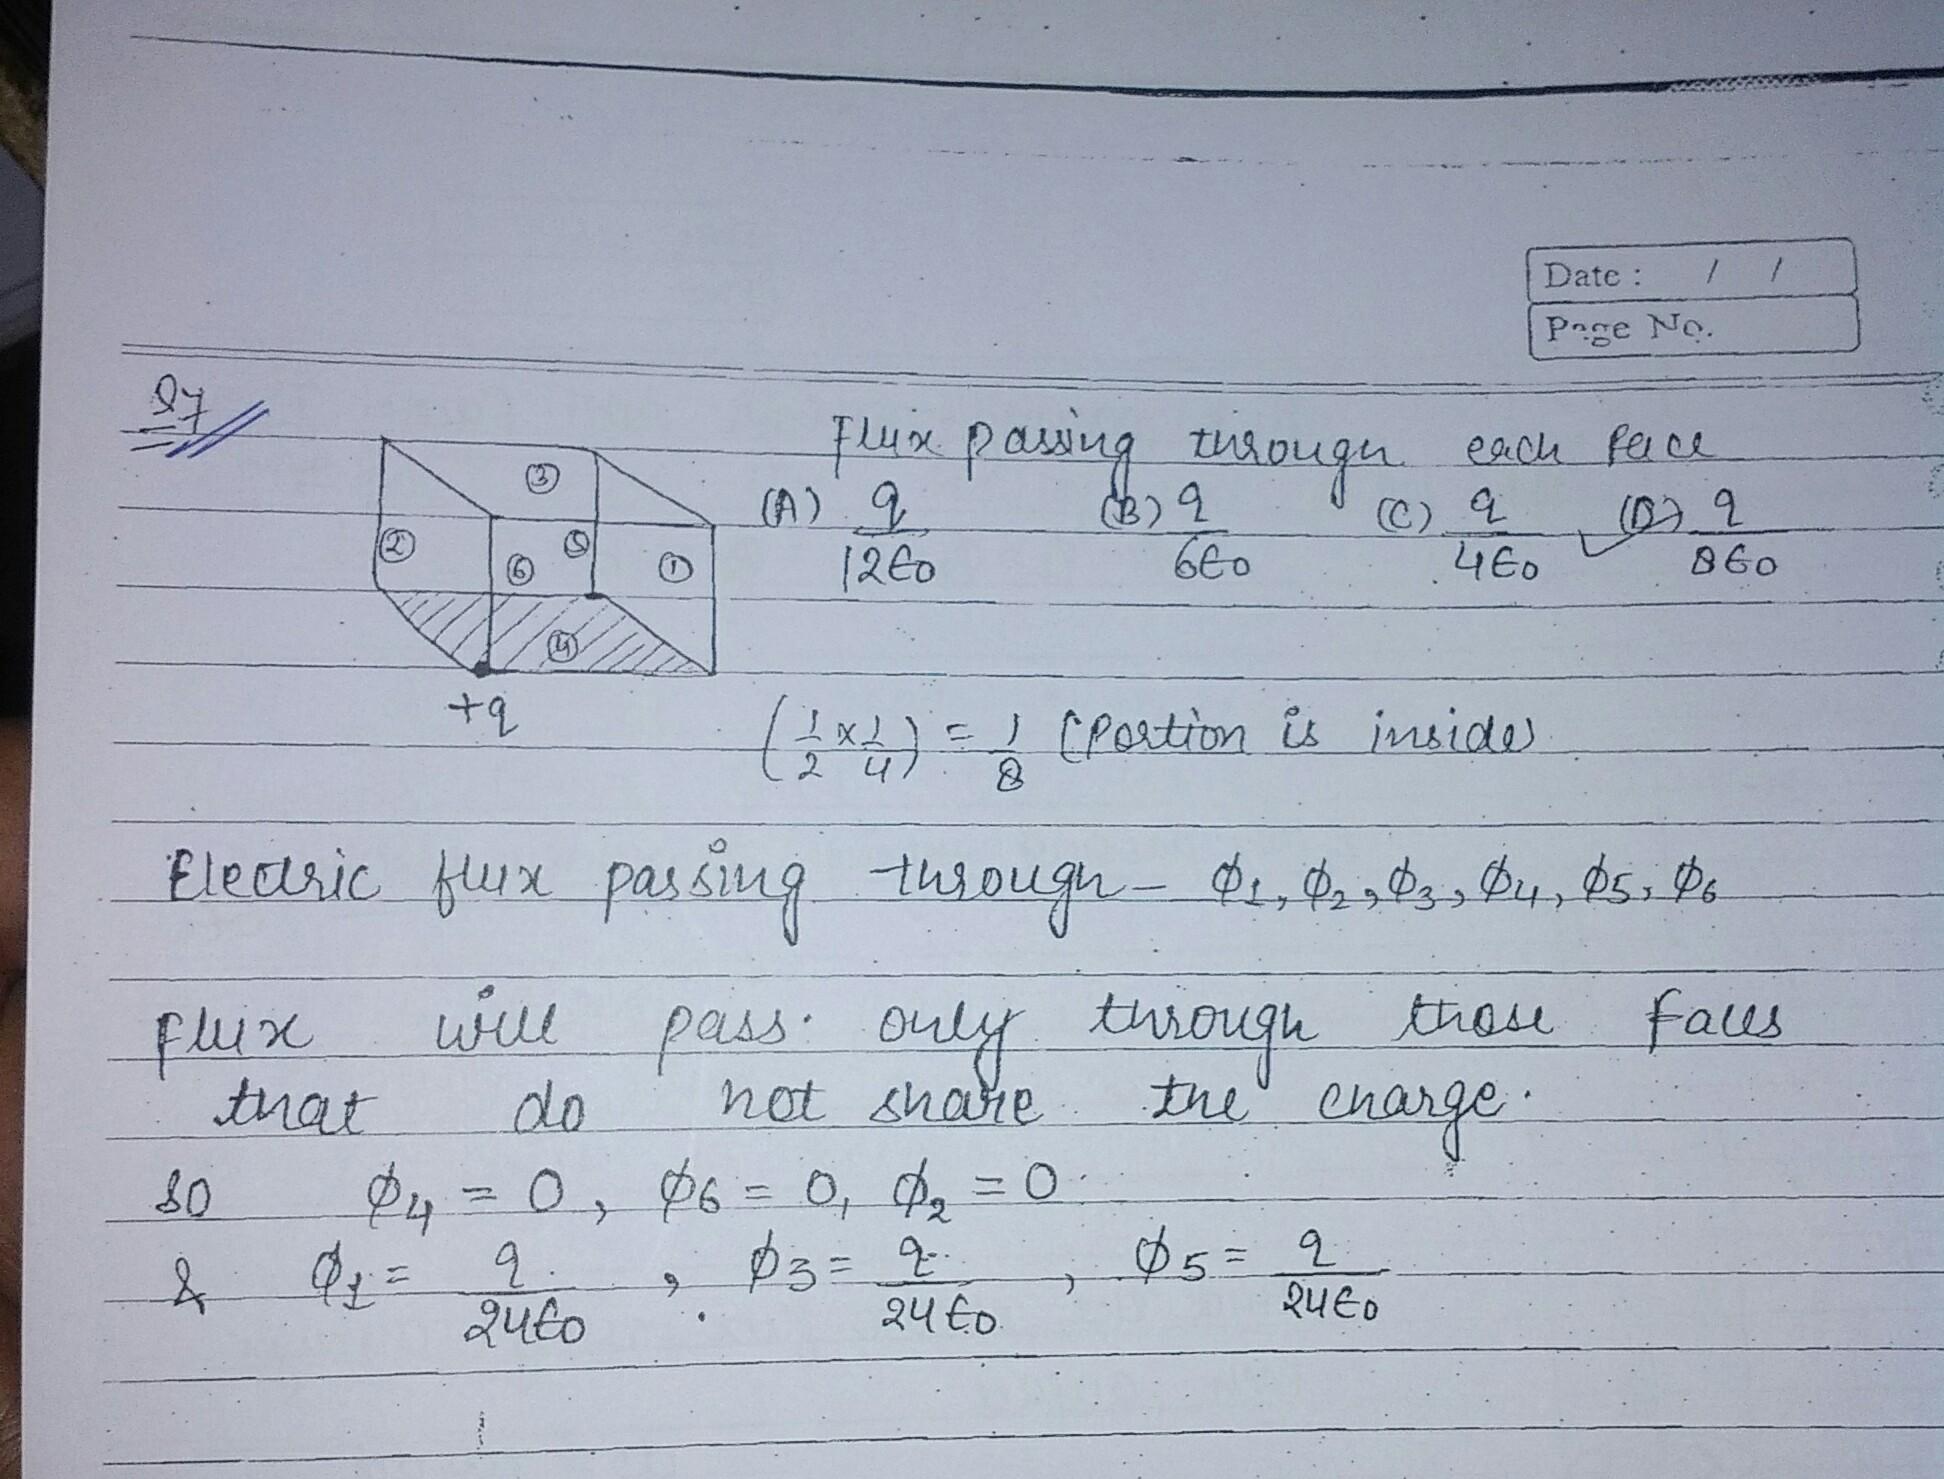 Date : / /
Page No.
27
Flux passing through each face
(A) q/12ϵ0 (B) q/6ϵ0 (C) q/4ϵ0 ✓(D) q/8ϵ0
③
② ⑤
⑥ ①
④
+q
(1/2 × 1/4) = 1/8 (Portion is inside)
Electric flux passing through – ϕ1, ϕ2, ϕ3, ϕ4, ϕ5, ϕ6
flux will pass only through those faces
that do not share the charge.
so ϕ4 = 0, ϕ6 = 0, ϕ2 = 0
& ϕ1 = q/24ϵ0 , ϕ3 = q/24ϵ0 , ϕ5 = q/24ϵ0